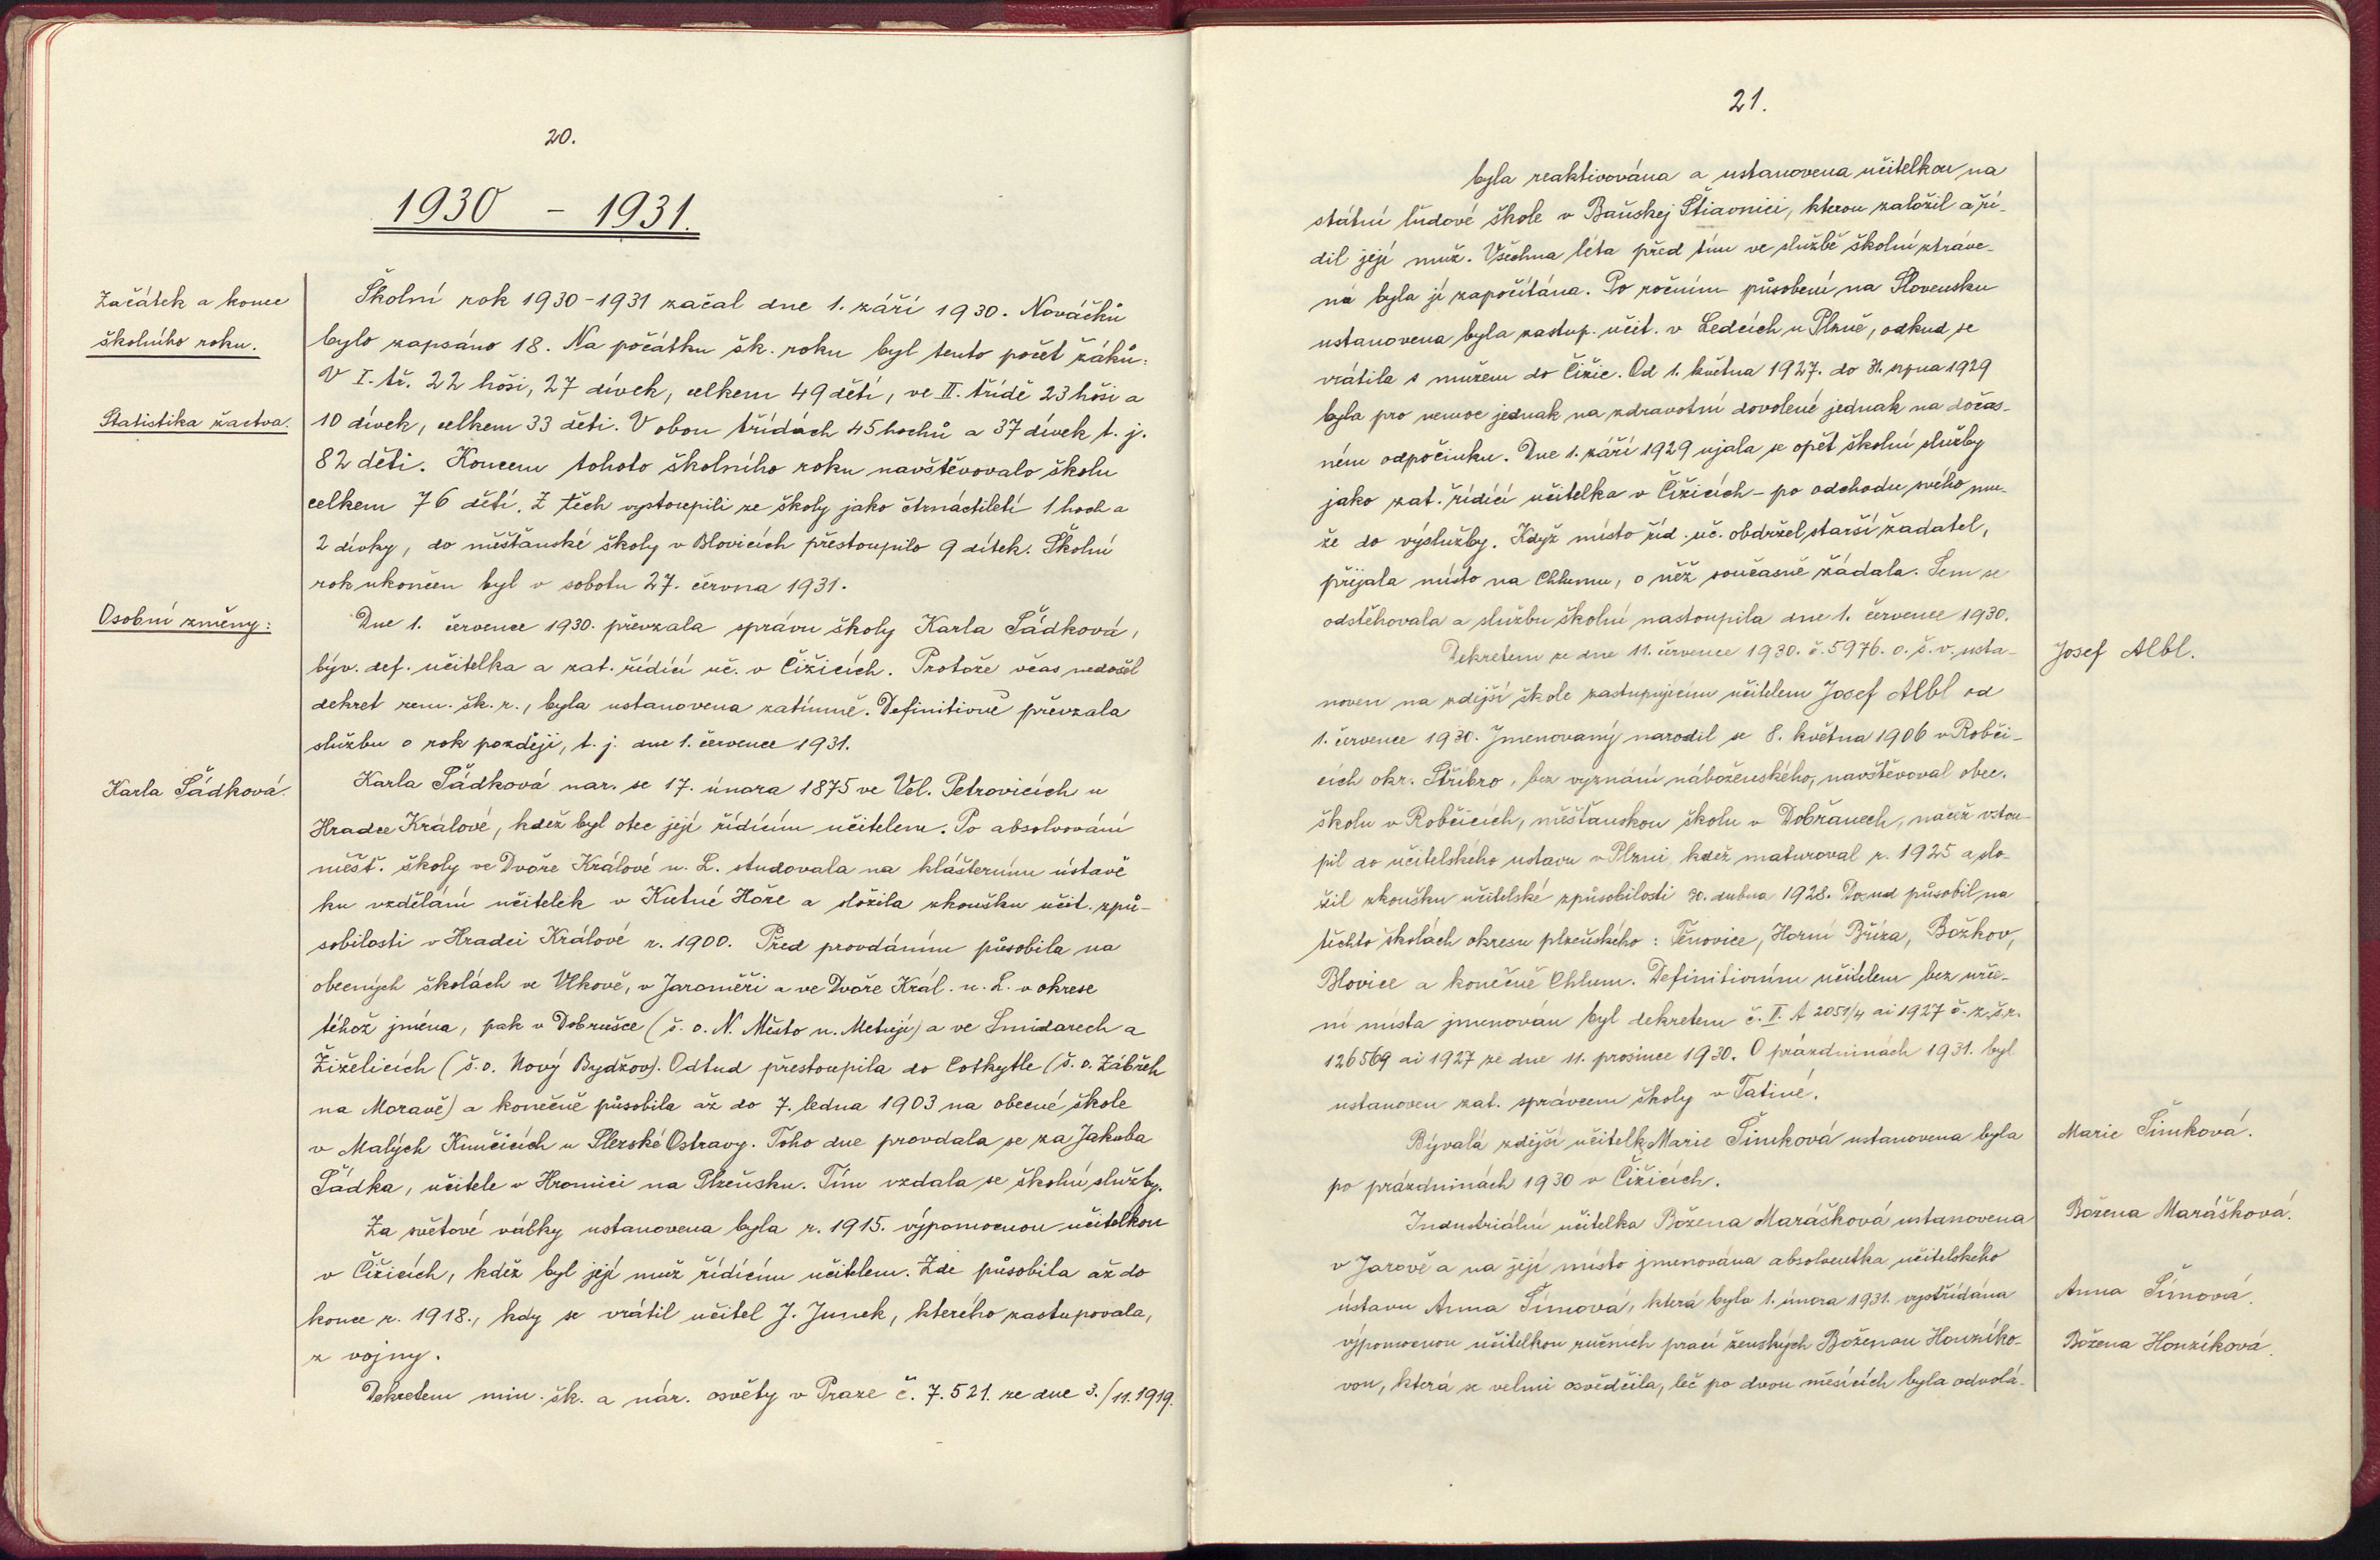 20.
1930 - 1931.
Začátek a konec
školního roku.
Školní rok 1930-1931 začal dne 1. září 1930. Nováčků
bylo zapsáno 18. Na počátku šk. roku byl tento počet žáků:
V I. tř. 22 hoši, 27 dívek, celkem 49 dětí, ve II. třídě 23 hoši a
Statistika žactva.
10 dívek, celkem 33 děti. V obou třídách 45 hochů a 37 dívek t. j.
82 děti. Koncem tohoto školního roku navštěvovalo školu
celkem 76 dětí. Z těch vystoupili ze školy jako čtrnáctiletí 1 hoch a
2 dívky, do měšťanské školy v Blovicích přestoupilo 9 dítek. Školní
rok ukončen byl v sobotu 27. června 1931.
Osobní změny:
Dne 1. července 1930. převzala správu školy Karla Šádková,
býv. def. učitelka a zat. řídící uč. v Čižicích. Protože včas nedošel
dekret zem. šk. r., byla ustanovena zatímně. Definitivně převzala
službu o rok později, t. j. dne 1. července 1931.
Karla Šádková.
Karla Šádková nar. se 17. února 1875 ve Vel. Petrovicích u
Hradce Králové, kdež byl otec její řídícím učitelem. Po absolvování
měšť. školy ve Dvoře Králové n. L. studovala na klášterním ústavě
ku vzdělání učitelek v Kutné Hoře a složila zkoušku učit. způ-
sobilosti v Hradci Králové r. 1900. Před provdáním působila na
obecných školách ve Vlkově, v Jaroměři a ve Dvoře Král. n. L. v okrese
téhož jména, pak v Dobrušce (š. o. N. Město n. Metují) a ve Smidarech a
Žiželicích (š. o. Nový Bydžov). Odtud přestoupila do Cotkytle (š. o. Zábřeh
na Moravě) a konečně působila až do 7. ledna 1903 na obecné škole
v Malých Kunčicích u Slezské Ostravy. Toho dne provdala se za Jakuba
Šádka, učitele v Hromici na Plzeňsku. Tím vzdala se školní služby.
Za světové války ustanovena byla r. 1915. výpomocnou učitelkou
v Čižicích, kdež byl její muž řídícím učitelem. Zde působila až do
konce r. 1918., kdy se vrátil učitel J. Junek, kterého zastupovala,
z vojny.
Dekretem min. šk. a nár. osvěty v Praze č. 7.521. ze dne 3./11.1919.
21.
byla reaktivována a ustanovena učitelkou na
státní ľudové škole v Baňskej Štiavnici, kterou založil a ří-
dil její muž. Všechna léta před tím ve službě školní ztráve-
ná byla jí započítána. Po ročním působení na Slovensku
ustanovena byla zastup. učit. v Ledcích u Plzně, odkud se
vrátila s mužem do Čižic. Od 1. května 1927. do 31. srpna 1929
byla pro nemoc jednak na zdravotní dovolené jednak na dočas-
ném odpočinku. Dne 1. září 1929 ujala se opět školní služby
jako zat. řídící učitelka v Čižicích - po odchodu svého mu-
že do výslužby. Když místo říd. uč. obdržel starší žadatel,
přijala místo na Chlumu, o něž současně žádala. Sem se
odstěhovala a službu školní nastoupila dne 1. července 1930.
Dekretem ze dne 11. července 1930. č. 5976. o. š. v. usta-
Josef Albl.
noven na zdejší škole zastupujícím učitelem Josef Albl od
1. července 1930. Jmenovaný narodil se 8. května 1906 v Robči-
cích okr. Stříbro, bez vyznání náboženského, navštěvoval obec.
školu v Robčicích, měšťanskou školu v Dobřanech, načež vstou-
pil do učitelského ustavu v Plzni, kdež maturoval r. 1925 a slo-
žil zkoušku učitelské způsobilosti 30. dubna 1928. Dosud působil na
těchto školách okresu plzeňského: Těnovice, Horní Bříza, Božkov,
Blovice a konečně Chlum. Definitivním učitelem bez urče-
ní místa jmenován byl dekretem č. II. A 2051/4 ai 1927 č. z. š. r.
126569 ai 1927 ze dne 11. prosince 1930. O prázdninách 1931. byl
ustanoven zat. správcem školy v Tatiné.
Bývalá zdejší učitelka Marie Šimková ustanovena byla
Marie Šimková.
po prázdninách 1930 v Čižicích.
Industriální učitelka Božena Marášková ustanovena
Božena Marášková.
v Jarově a na její místo jmenována absolventka učitelského
ústavu Anna Šímová, která byla 1. února 1931. vystřídána
Anna Šímová.
výpomocnou učitelkou ručních prací ženských Boženou Honzíko-
Božena Honzíková.
vou, která se velmi osvědčila, leč po dvou měsících byla odvolá-